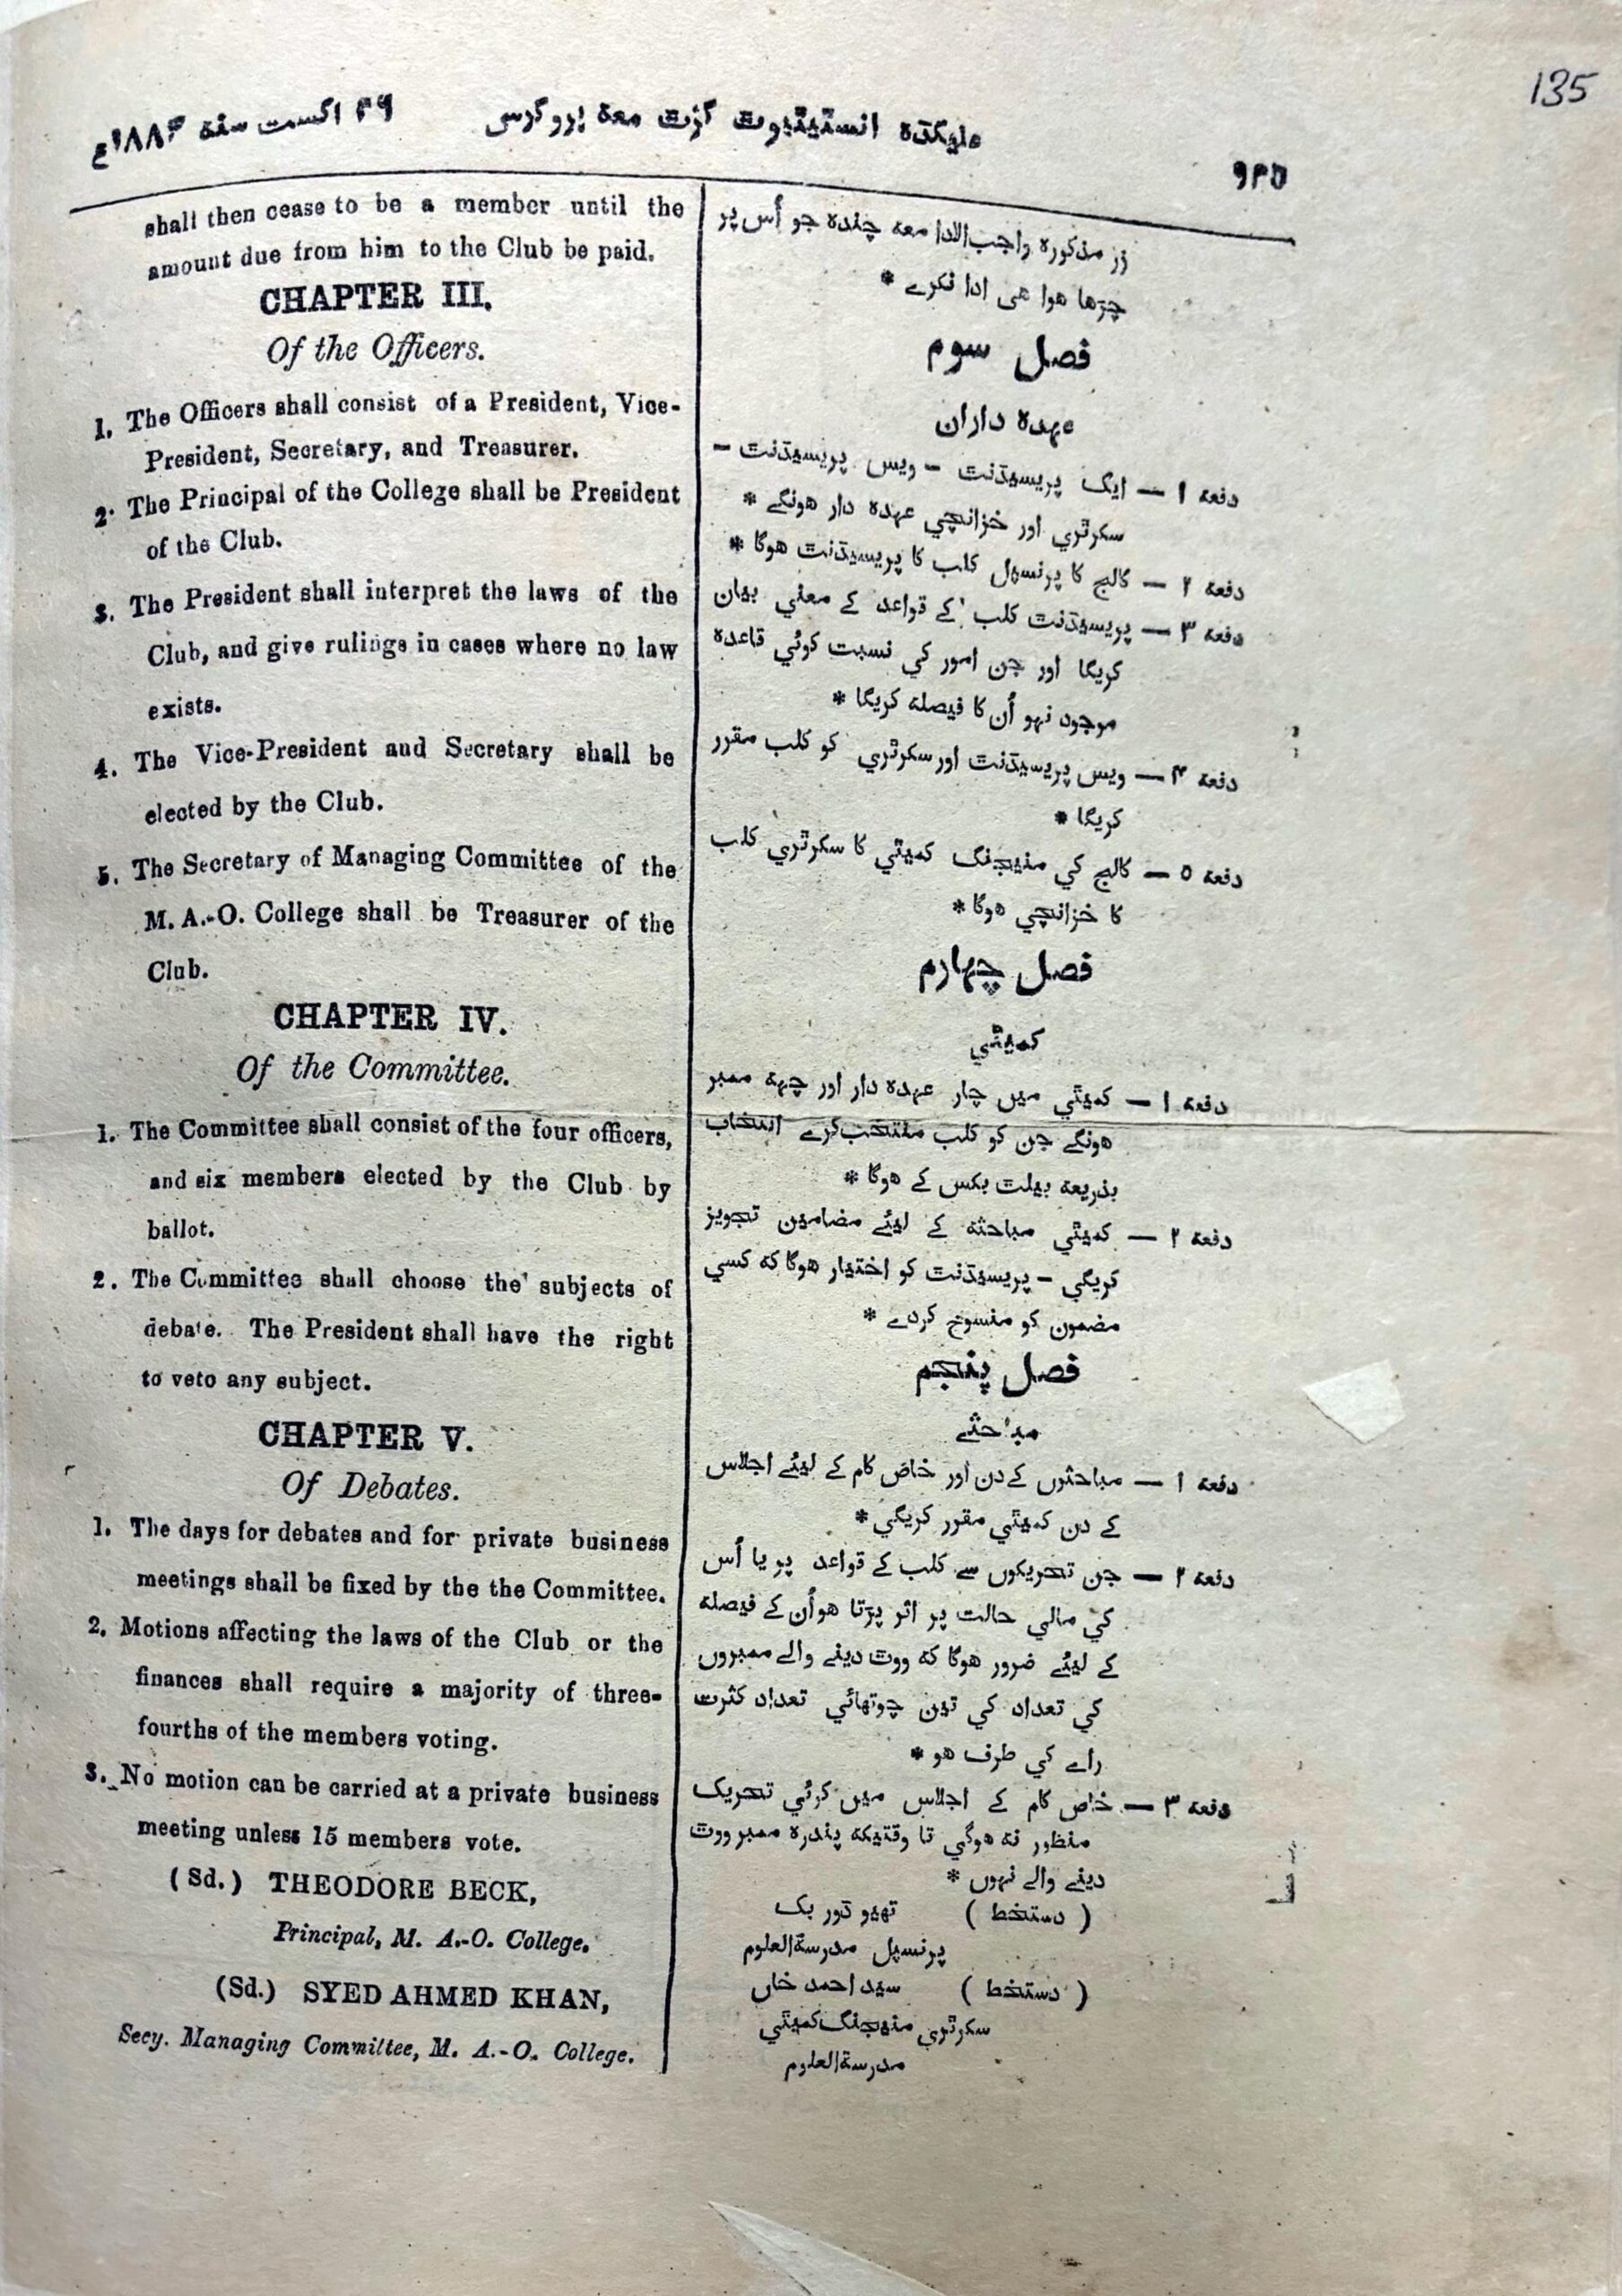 135
علیگڈہ انسٹیٹیوٹ گزٹ معہ پروگرس
۲۹ اگست سنہ ۱۸۸۴ع
۹۳۵
shall then cease to be a member until the
amount due from him to the Club be paid.
CHAPTER III.
Of the Officers.
1. The Officers shall consist of a President, Vice-
President, Secretary, and Treasurer.
2. The Principal of the College shall be President
of the Club.
3. The President shall interpret the laws of the
Club, and give rulings in cases where no law
exists.
4. The Vice-President and Secretary shall be
elected by the Club.
5. The Secretary of Managing Committee of the
M. A.-O. College shall be Treasurer of the
Club.
CHAPTER IV.
Of the Committee.
1. The Committee shall consist of the four officers,
and six members elected by the Club by
ballot.
2. The Committee shall choose the subjects of
debate. The President shall have the right
to veto any subject.
CHAPTER V.
Of Debates.
1. The days for debates and for private business
meetings shall be fixed by the the Committee.
2. Motions affecting the laws of the Club or the
finances shall require a majority of three-
fourths of the members voting.
3. No motion can be carried at a private business
meeting unless 15 members vote.
(Sd.) THEODORE BECK,
Principal, M. A.-O. College.
(Sd.) SYED AHMED KHAN,
Secy. Managing Committee, M. A.-O. College.
زر مذکورہ واجب‌الادا معہ چندہ جو اُس پر
چڑھا ہوا ہی ادا نکرے *
فصل سوم
عہدہ داران
دفعہ ۱ — ایک پریسیڈنٹ - ویس پریسیڈنٹ -
سکرٹري اور خزانچي عہدہ دار ہونگے *
دفعہ ۲ — کالج کا پرنسپل کلب کا پریسیڈنٹ ہوگا *
دفعہ ۳ — پریسیڈنٹ کلب کے قواعد کے معني بیان
کریگا اور جن امور کي نسبت کوئي قاعدہ
موجود نہو اُن کا فیصلہ کریگا *
دفعہ ۴ — ویس پریسیڈنٹ اور سکرٹري کو کلب مقرر
کریگا *
دفعہ ۵ — کالج کي منیجنگ کمیٹي کا سکرٹري کلب
کا خزانچي ہوگا *
فصل چہارم
کمیٹي
دفعہ ۱ — کمیٹي میں چار عہدہ دار اور چہہ ممبر
ہونگے جن کو کلب منتخب کرے انتخاب
بذریعہ بیلٹ بکس کے ہوگا *
دفعہ ۲ — کمیٹي مباحثہ کے لیئے مضامین تجویز
کریگي - پریسیڈنٹ کو اختیار ہوگا کہ کسي
مضمون کو منسوخ کردے *
فصل پنجم
مباحثے
دفعہ ۱ — مباحثوں کے دن اور خاص کام کے لیئے اجلاس
کے دن کمیٹي مقرر کریگي *
دفعہ ۲ — جن تحریکوں سے کلب کے قواعد پر یا اُس
کي مالي حالت پر اثر پڑتا ہو اُن کے فیصلہ
کے لیئے ضرور ہوگا کہ ووٹ دینے والے ممبروں
کي تعداد کي تین چوتھائي تعداد کثرت
راے کي طرف ہو *
دفعہ ۳ — خاص کام کے اجلاس میں کوئي تحریک
منظور نہ ہوگي تا وقتیکہ پندرہ ممبر ووٹ
دینے والے نہوں *
( دستخط ) تھیو ڈور بک
پرنسپل مدرسةالعلوم
( دستخط ) سید احمد خاں
سکرٹري منیجنگ کمیٹي
مدرسةالعلوم